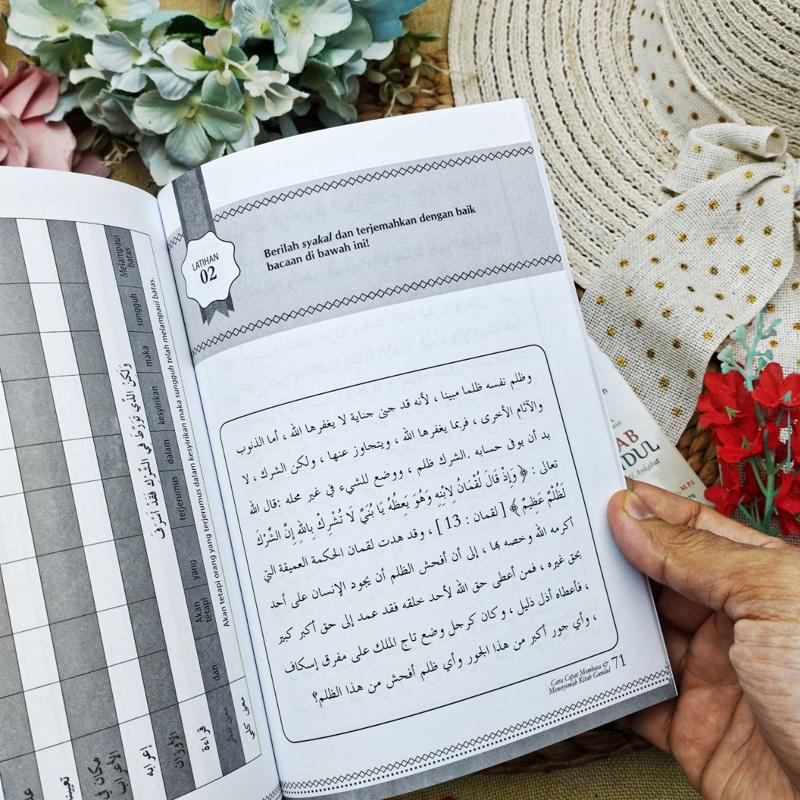 Melampaui batas
sungguh
maka
kesyirikan
dalam
terjerumus
yang
Akan tetapi
dan
وَلَكِنْ الَّذِي تَوَرَّطَ فِي الشِّرْكِ فَقَدْ أَسْرَفَ
Akan tetapi orang yang terjerumus dalam kesyirikan maka sungguh telah melampaui batas.
قراءة
الأوزان
إعرابه
LATIHAN
02
Berilah syakal dan terjemahkan dengan baik
bacaan di bawah ini!
وظلم نفسه ظلما مبينا ، لأنه قد جنى جناية لا يغفرها الله ، أما الذنوب
والآثام الأخرى ، فربما يغفرها الله ، ويتجاوز عنها ، ولكن الشرك ، لا
بد أن يوفى حسابه .الشرك ظلم ، ووضع للشيء في غير محله :قال الله
تعالى : ﴿ وَإِذْ قَالَ لُقْمَانُ لِابْنِهِ وَهُوَ يَعِظُهُ يَا بُنَيَّ لَا تُشْرِكْ بِاللَّهِ إِنَّ الشِّرْكَ
لَظُلْمٌ عَظِيمٌ ﴾ [ لقمان : 13 ] ، وقد هدت لقمان الحكمة العميقة التي
أكرمه الله وخصه بها ، إلى أن أفحش الظلم أن يجود الإنسان على أحد
بحق غيره ، فمن أعطى حق الله لأحد خلقه فقد عمد إلى حق أكبر كبير
، فأعطاه أذل ذليل ، وكان كرجل وضع تاج الملك على مفرق إسكاف
، وأي جور أكبر من هذا الجور وأي ظلم أفحش من هذا الظلم؟
Cara Cepat Membaca &
Menerjemah Kitab Gundul
71